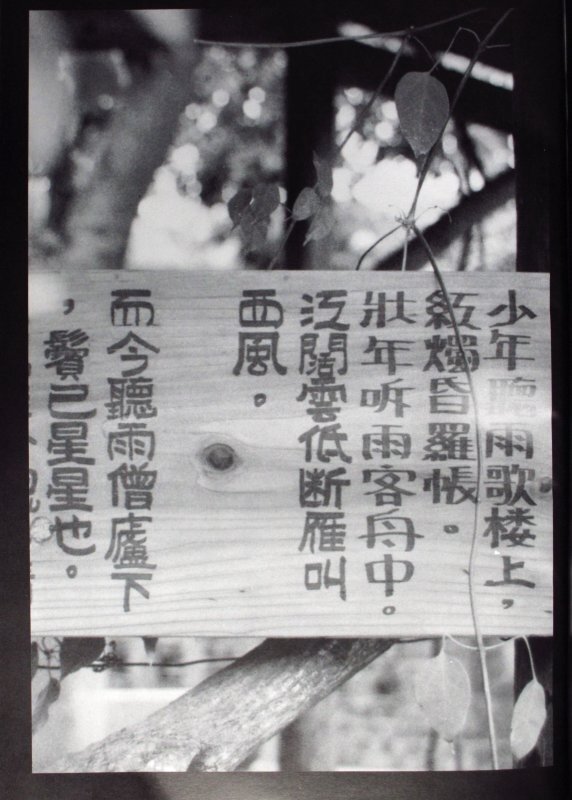 少年聽雨歌楼上，
紅燭昏羅帳。
壯年听雨客舟中。
江闊雲低断雁叫
西風。
而今聽雨僧廬下
，鬢已星星也。